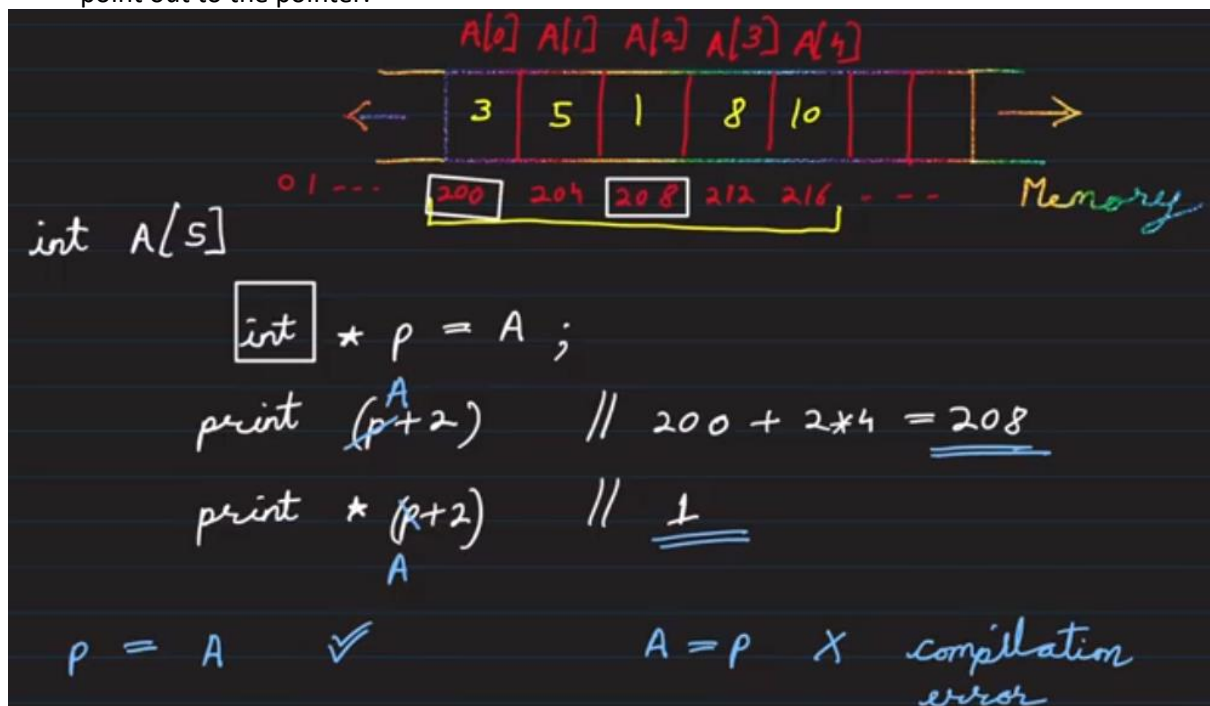 point out to the pointer.
A[0] A[1] A[2] A[3] A[4]
3 5 1 8 10
0 1 --- 200 204 208 212 216 - - - Memory
int A[5]
int * p = A ;
A
print (p+2) // 200 + 2*4 = 208
print * (p+2) // 1
A
p = A ✓ A = p X compilation
error